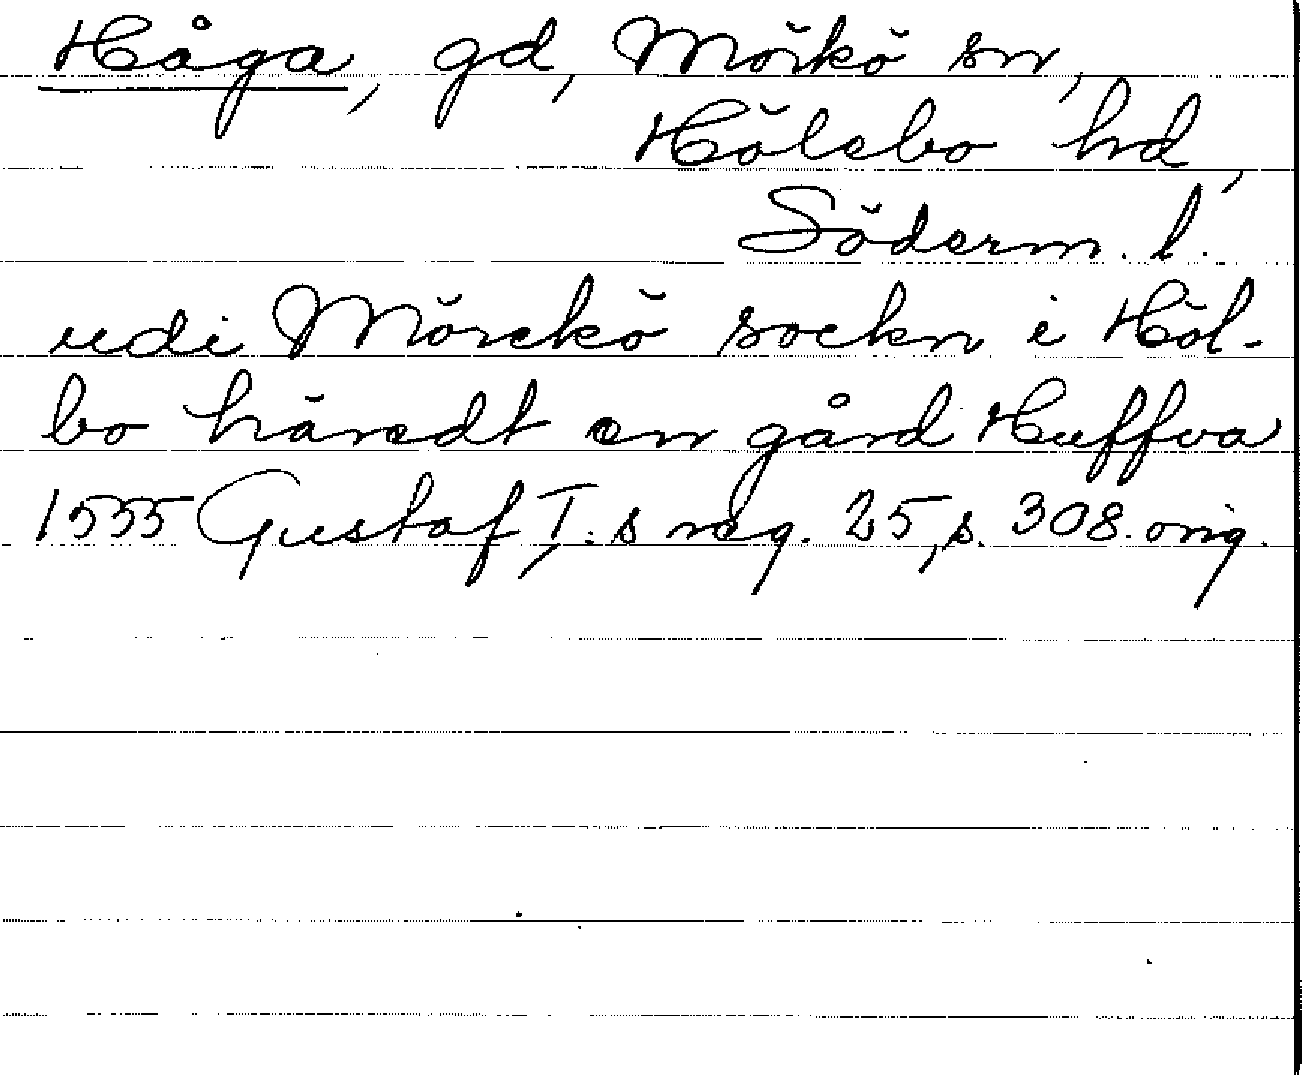 Håga, gd, Mörkö sn,
Hölebo hd,
Söderm. l.
udi Mörckö sockn i Höl-
bo häredt en gård Huffva
1555 Gustaf I:s reg. 25, s. 308. orig.